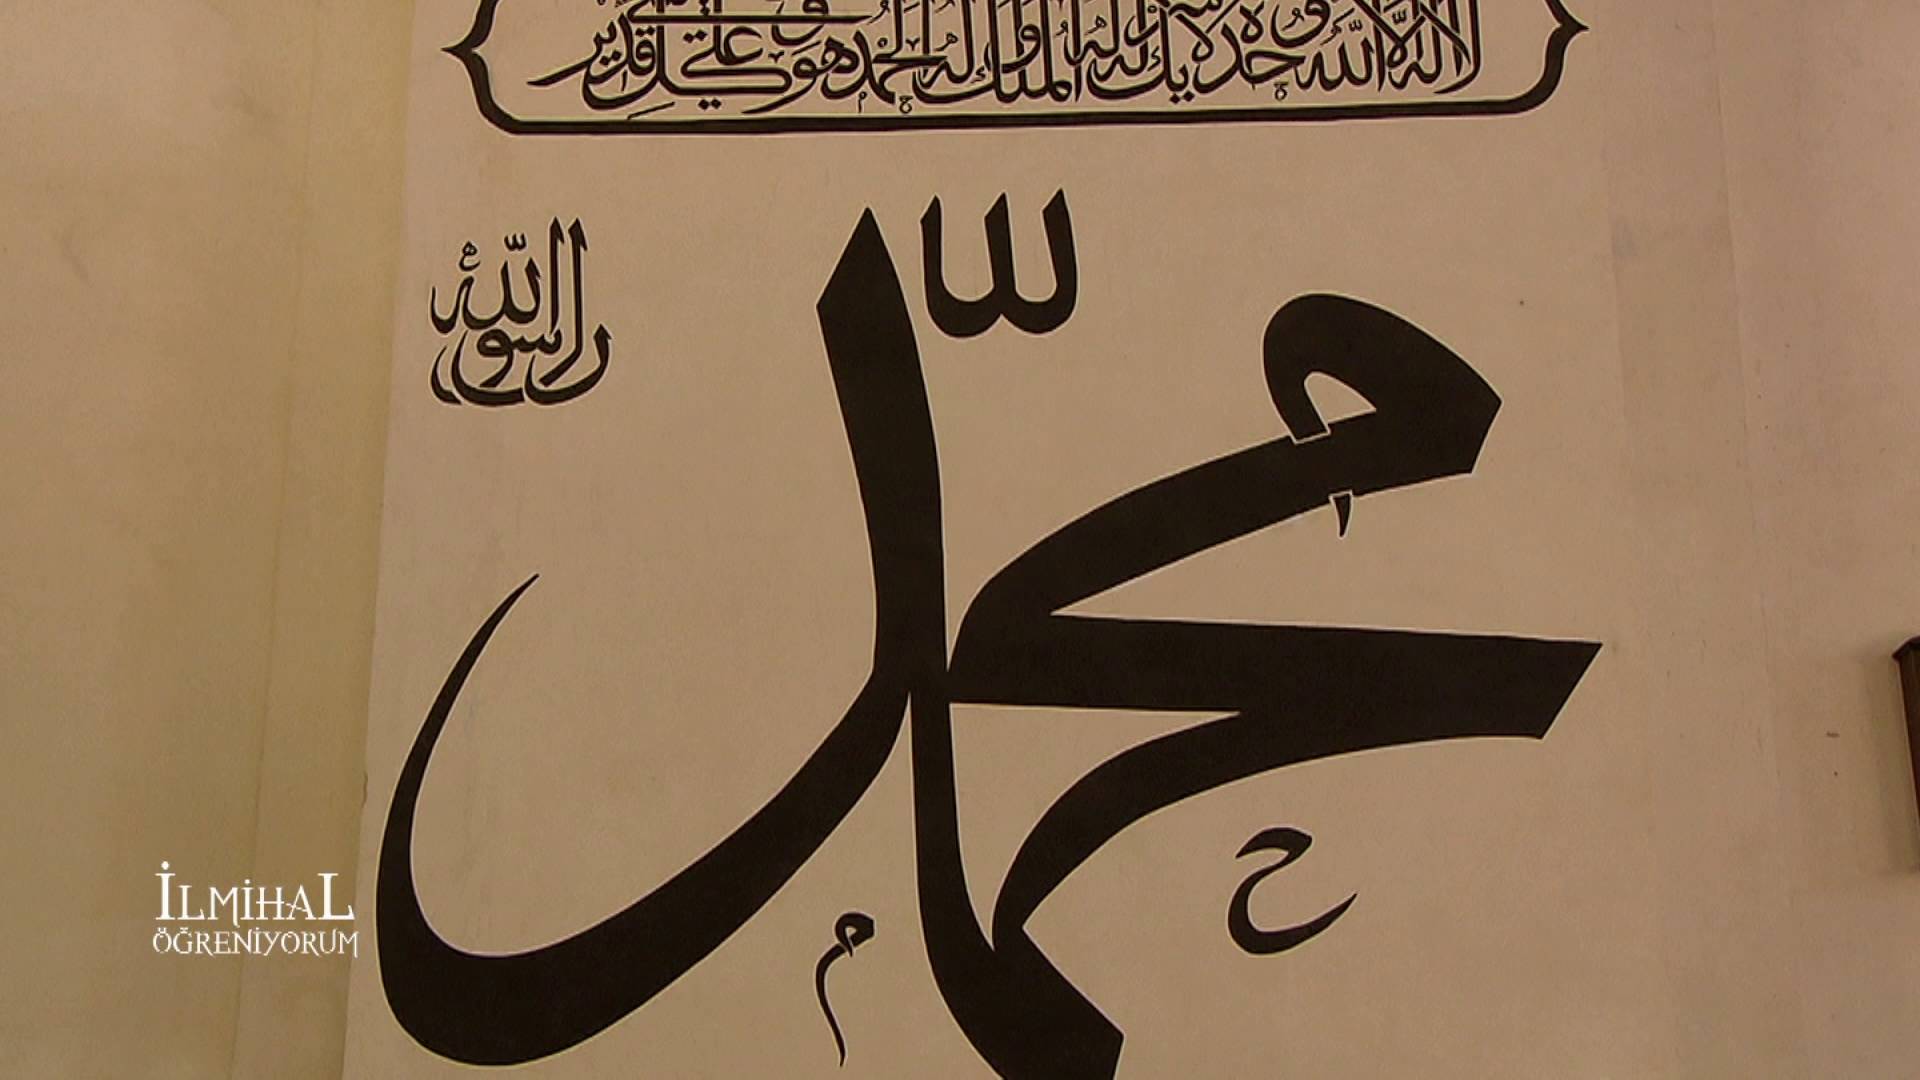 لا اله الا الله وحده لا شريك له له الملك وله الحمد وهو على كل شيء قدير
محمد
رسول الله
İLMİHAL
ÖĞRENİYORUM